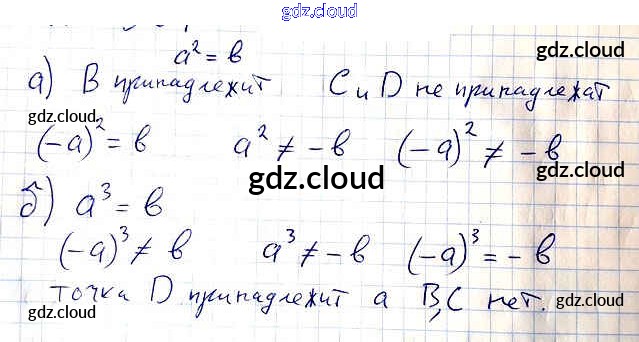 gdz.cloud
a² = b
gdz.cloud
а) B принадлежит C и D не принадлежат
gdz.cloud
(-a)² = b a² ≠ -b (-a)² ≠ -b
gdz.cloud
gdz.cloud
б) a³ = b
(-a)³ ≠ b a³ ≠ -b (-a)³ = -b
точка D принадлежит а B,C нет.
gdz.cloud
gdz.cloud
gdz.cloud